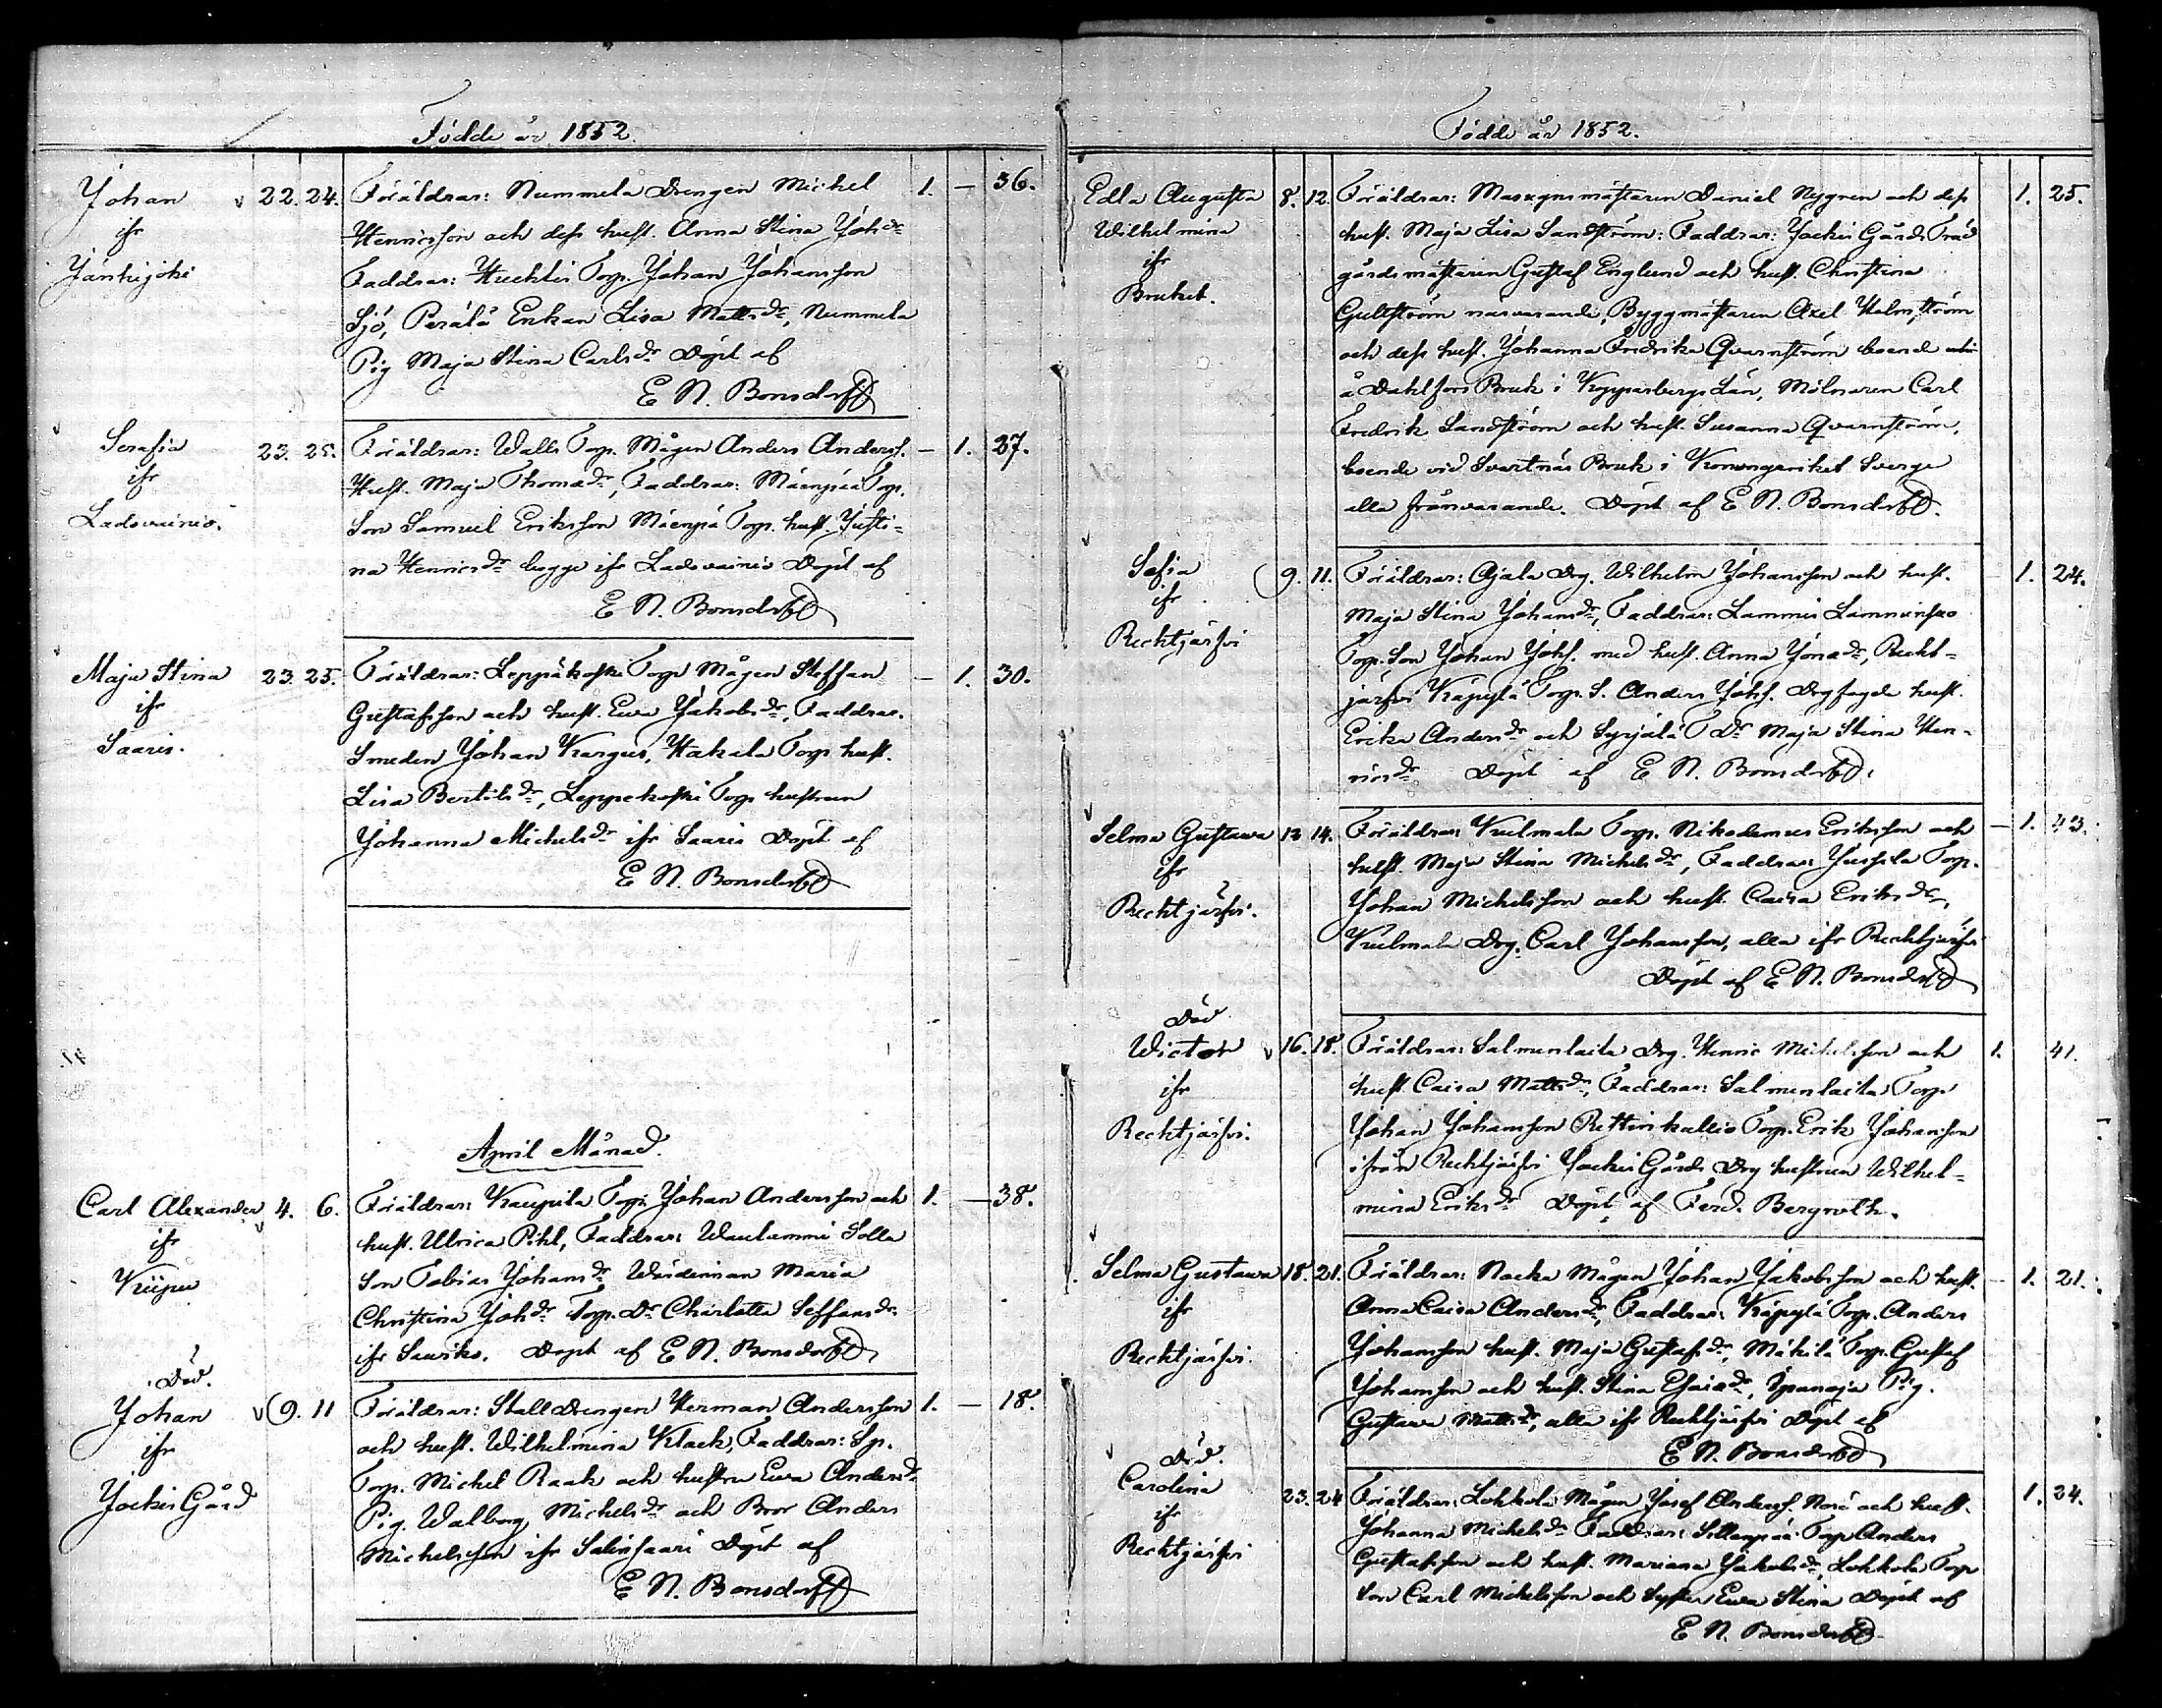 Födde år 1852.
Johan 22. 24. Föräldrar: Nummela Drengen Michel 1. — 36.
ifr Henricsson och dess hust. Anna Stina Johdr
Jänhijoki Faddrar: Huchtis Torp. Johan Johansson
Sjö, Perälä Enkan Lisa Mattsdr, Nummela
Pig Maja Stina Carlsdr Döpt af
E N. Bonsdorff
Serafia 23. 25. Föräldrar: Walls Torp. Mågen Anders Anderss. — 1. 27.
ifr Hust. Maja Thomadr, Faddrar: Mäenpää Torp.
Ladovainio. Son Samuel Eriksson Mäenpä Torp. hust. Justi-
na Henricsdr begge ifr Ladovainio Döpt af
E N. Bonsdorff
Maja Stina 23. 25. Föräldrar: Leppäkoski Torp Mågen Steffan — 1. 30.
ifr Gustafsson och hust. Eva Jakobsdr, Faddrar.
Saaris. Smeden Johan Kargus, Hakala Torp hust.
Lisa Bertilsdr, Leppekoski Torp hustrun
Johanna Michelsdr ifr Saaris Döpt af
E N. Bonsdorff
April Månad.
Carl Alexander 4. 6. Föräldrar: Kaupila Torp. Johan Andersson och 1. — 38.
ifr hust. Ulrica Pihl, Faddrar: Waulammi Solla
Kiipu Son Tobias Johansdr Wärdinnan Maria
Christina Johdr Torp. Dr Charlotta Seffansdr
ifr Sauriko. Döpt af E N. Bonsdorff
Död.
Johan 9. 11 Föräldrar: Stall Drengen Herman Andersson 1. — 18.
ifr och hust. Wilhelmina Klack, Faddrar: Sp.
Jockis Gård Torp. Michel Raak och hustru Eva Andersdr
Pig. Walborg Michelsdr och Bror Anders
Michelsson ifr Salinsaari Döpt af
E N. Bonsdorff
Födde år 1852.
Edla Augusta 8. 12. Föräldrar: Masugnsmästaren Daniel Nygren och dess 1. 25.
Wilhelmina hust. Maja Lisa Sandström: Faddrar: Jockis Gårds Träd
ifr gårdsmästaren Gustaf Englund och hust. Christina
Bruket. Gultström närvarande, Byggmästaren Axel Holmström
och dess hust. Johanna Fredrika Qvarnström boende
å Dahlfors Bruk i Kopparbergs Län, Mölnaren Carl
Fredrik Sandström och hust. Susanna Qvarnström,
boende vid Svartnäs Bruk i Konungariket Sverge
alla frånvarande. Döpt af E N. Bonsdorff.
Sofia 9. 11. Föräldrar: Ojala Drg. Wilhelm Johansson och hust. 1. 24.
ifr Maja Stina Johansdr, Faddrar: Lammis
Rechtjärfvi Torp. Son Johan Johs. med hust. Anna Jonadr, Recht-
järfvi Käpylä Torp. S. Anders Johs. Drg hust.
Erika Andersdr och Syrjälä T Dr Maja Stina Hen-
ricsdr Döpt af E N. Bonsdorff.
Selma Gustava 12 14. Föräldrar: Kulmala Torp. Nikodemus Eriksson och — 1. 43.
ifr hust. Maja Stina Michelsdr, Faddrar: Jussila Torp.
Rechtjärfvi. Johan Michelsson och hust. Caisa Eriksdr,
Kulmala Drg. Carl Johansson, alla ifr Rechtjärfvi
Döpt af E N. Bonsdorff
Död
Wictor 16. 18. Föräldrar: Salmenlaita Drg. Henric Michelsson och 1. 41.
ifr hust. Caisa Mattsdr, Faddrar: Salmenlaita Torp
Rechtjärfvi. Johan Johansson Rittinkallio Torp. Erik Johansson
ifrån Rechtjärfvi Jockis Gårds Drg hustrun Wilhel-
mina Eriksdr Döpt af Ferd. Bergroth.
Selma Gustava 18. 21. Föräldrar: Nocka Mågen Johan Jakobsson och hust. — 1. 21.
ifr Anna Caisa Andersdr, Faddrar: Käpylä Torp. Anders
Rechtjärfvi. Johansson hust. Maja Gustafsdr, Mäkilä Torp. Gustaf
Johansson och hust. Stina Esaiadr, Ypanoja Pig.
Gustava Mattsdr, alla ifr Rechtjärfvi Döpt af
E N. Bonsdorff
Död.
Carolina 23. 24 Föräldrar: Lokkola Mågen Josef Anderss. Norä och hust. 1. 24.
ifr Johanna Michelsdr Faddrar: Sillanpää Torp Anders
Rechtjärfvi Gustafsson och hust. Mariana Jakobsdr, Lokkola Torp
Son Carl Michelsson och Syster Eva Stina Döpt af
E N. Bonsdorff